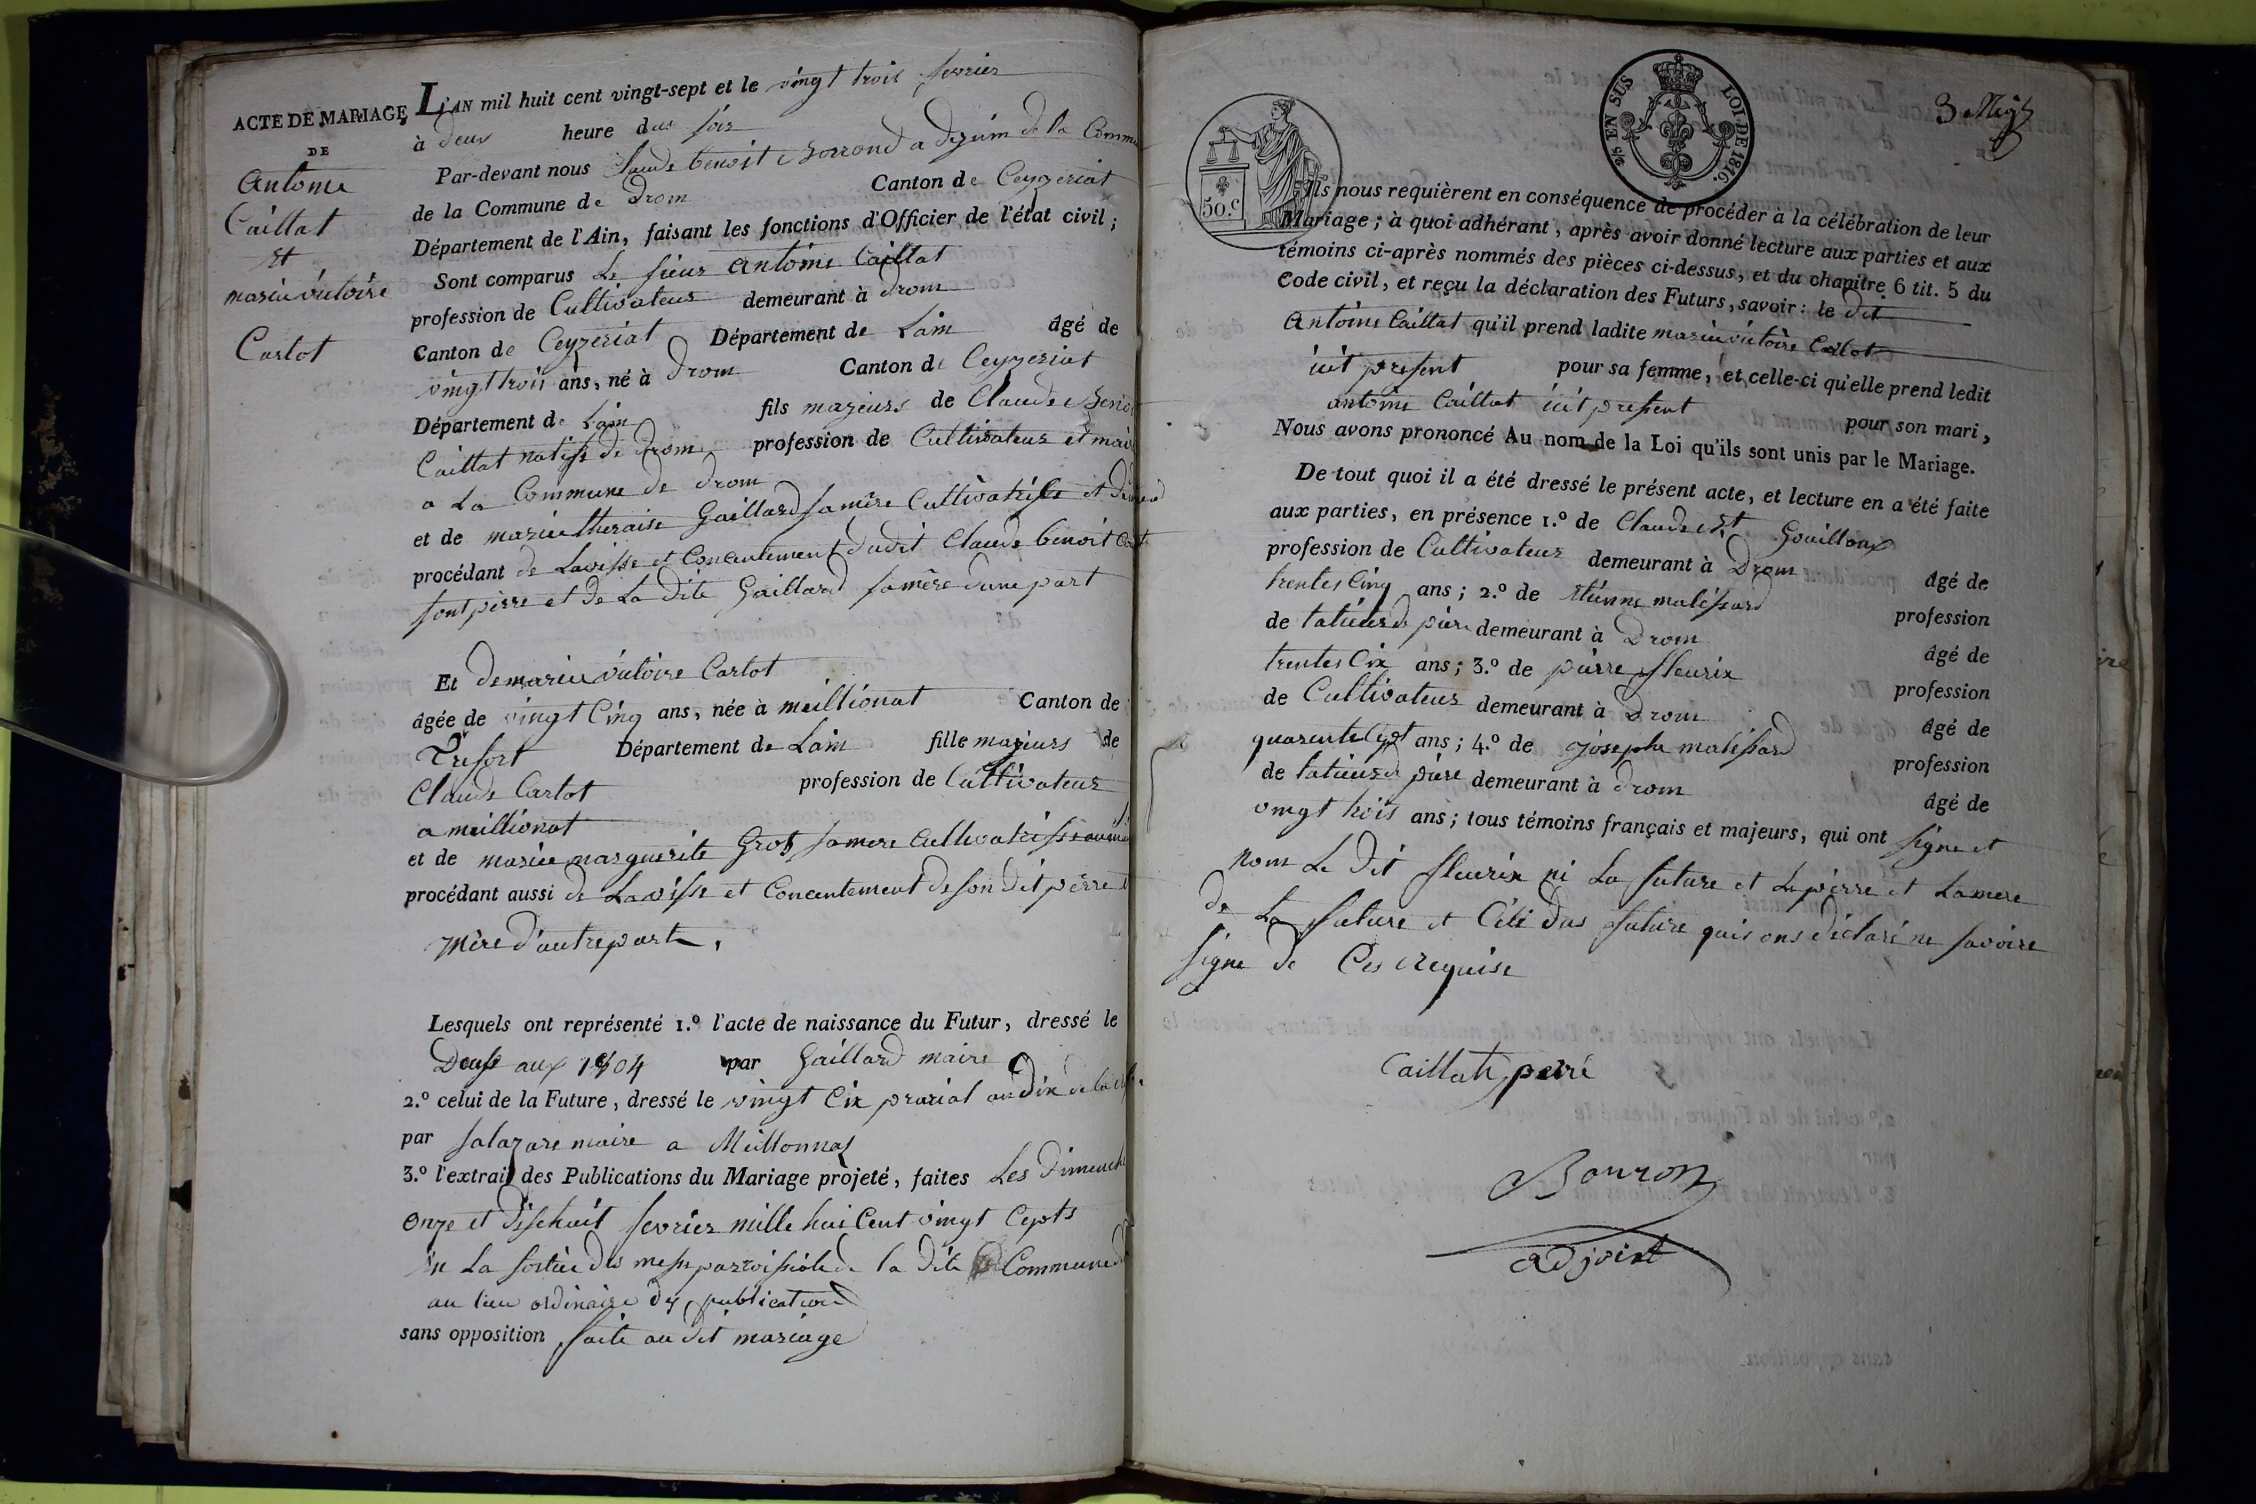 ACTE DE MARIAGE
DE
Antoine
Caillat
et
marie victoire
Carlot
L'AN mil huit cent vingt-sept et le vingt trois fevrier
à deux heure du soir
Par-devant nous Claude benoit Borrond adjoint de la Commu
de la Commune de Drom Canton de Ceyzeriat
Département de l'Ain, faisant les fonctions d'Officier de l'état civil;
Sont comparus Le sieur Antoine Caillat
profession de Cultivateur demeurant à Drom
Canton de Ceyzeriat Département de Lain âgé de
vingt trois ans, né à Drom Canton de Ceyzeriat
Département de Lain fils majeurs de Claude Benoi
Caillat natife de Drom profession de Cultivateur et mair
a La Commune de Drom
et de marie theraise Gaillard sa mère Cultivatrisse et
procédant de Lavisse et Concentement dudit Claude benoit
sont pèrre et de La dite Gaillard sa mère d'une part
Et de marie victoire Carlot
âgée de vingt Cinq ans, née à meillionat Canton de
Trefort Département de Lain fille majeurs de
Claude Carlot profession de Cultivateur
a meillionat
et de marie marguerite Gros sa mere Cultivatrisse
procédant aussi de Lavisse et Concentement de son dit pèrre
mère d'autre part.
Lesquels ont représenté 1.º l'acte de naissance du Futur, dressé le
1804 par Gaillard maire
2.º celui de la Future, dressé le vingt Cix prarial an dix de la
par salazare maire a Meillonnas
3.º l'extrait des Publications du Mariage projeté, faites Les Dimench
Onze et Dischuit fevrier mille hui Cent vingt Cepts
La sortie des mess parroissiale de la dite Commune
au lieu ordinaire des publication
sans opposition faite au dit mariage
50.c
25 EN SUS LOI DE 1816.
Ils nous requièrent en conséquence de procéder à la célébration de leur
Mariage; à quoi adhérant, après avoir donné lecture aux parties et aux
témoins ci-après nommés des pièces ci-dessus, et du chapitre 6 tit. 5 du
Code civil, et reçu la déclaration des Futurs, savoir: le dit
Antoine Caillat qu'il prend ladite marie victoire Carlot
icit present pour sa femme, et celle-ci qu'elle prend ledit
antoine Caillat icit present pour son mari,
Nous avons prononcé Au nom de la Loi qu'ils sont unis par le Mariage.
De tout quoi il a été dressé le présent acte, et lecture en a été faite
aux parties, en présence 1.º de Claude Gouilloux
profession de Cultivateur demeurant à Drom âgé de
trentes Cinq ans; 2.º de Etienne malissard profession
de demeurant à Drom âgé de
trentes Cix ans; 3.º de pierre fleurix profession
de Cultivateur demeurant à Drom âgé de
quarente Cept ans; 4.º de Josephe malissard profession
de demeurant à Drom âgé de
vingt trois ans; tous témoins français et majeurs, qui ont signe et
nom Le Dit fleurix ni La future et Le pèrre et La mere
de La future et future quis ons déclaré ne savoire
signe de Ces Requise
Caillat peiré
Bouron
adjoint